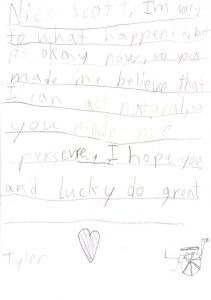 Nick Scott, I'm sorry
to what happened, but
it's okay now, so you
made me believe that
I can act natural, so
you made me
persevre, I hope you
and lucky do great
Tyler